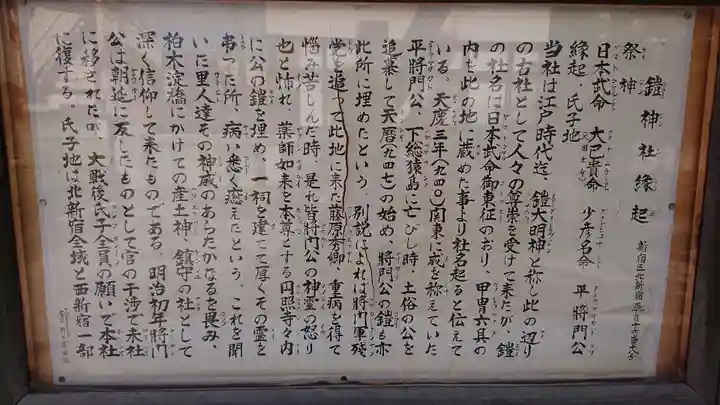 鎧神社縁起 新宿区北新宿三丁目十六番十八号
祭神
日本武命 大己貴命 少彦名命 平將門公
縁起、氏子地
当社は江戸時代迄、鎧大明神と称し此の辺り
の古社として人々の尊崇を受けて來たが、鎧
の社名は日本武命御東征のおり、甲冑六具の
内を此の地に蔵めた事より社名起ると伝えて
いる。天慶三年(九四〇)関東に威を称えていた
平將門公、下総猿島に亡びし時、土俗の公を
追慕して天暦(九四七)の始め、將門公の鎧も亦
此所に埋めたという。別説によれば將門軍残
党を追って此地に来た藤原秀郷、重病を得て
悩み苦しんだ時、是れ皆將門公の神霊の怒り
也と怖れ、薬師如来を本尊とする円照寺々内
に公の鎧を埋め、一祠を建てて厚くその霊を
弔った所、病い悉く癒えたという。これを聞
いた里人達その神威のあらたかなるを畏み、
柏木淀橋にかけての産土神、鎮守の社として
深く信仰して来たものである。明治初年將門
公は朝廷に反したものとして官の干渉で末社
に移されたが、大戦後氏子全員の願いで本社
に復する。氏子地は北新宿全域と西新宿一部